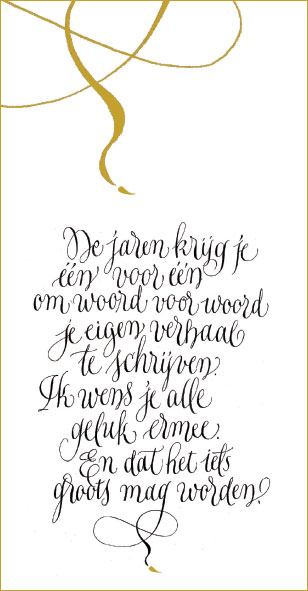 De jaren krijg je
één voor één
om woord voor woord
je eigen verhaal
te schrijven.
Ik wens je alle
geluk ermee.
En dat het iets
groots mag worden.